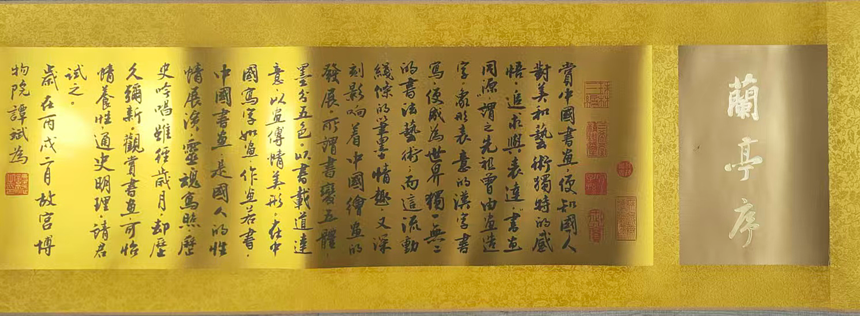 蘭亭序
賞中國書畫，便知國人
對美和藝術獨特的感
悟、追求與表達。書畫
同源，謂之先祖曾由畫造
字，象形表意的漢字書
寫，便成為世界獨一無二
的書法藝術，而這流動
綫條的筆墨情趣，又深
刻影响着中國繪畫的
發展，所謂書變五體，
墨分五色，以書載道達
意，以畫傳情美形。在中
國寫字如畫，作畫若書，
中國書畫是國人的性
情展演，靈魂寫照。歷
史吟唱雖經歲月，卻歷
久彌新。觀賞書畫可怡
情養性，通史明理，請君
試之。
歲在丙戌二月故宮博
物院譚斌為